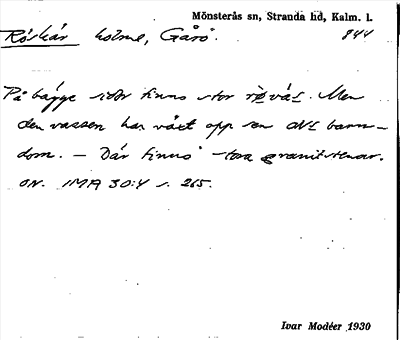 Mönsterås sn, Stranda hd, Kalm. l.
Röskär holme, Gårö. 844
På bägge sidor finns stor rö vás. Men
den vassen har växt opp sen ds barn-
dom. – Där finns stora granitstenar.
ON. IMA 30:4 s. 265.
Ivar Modéer 1930